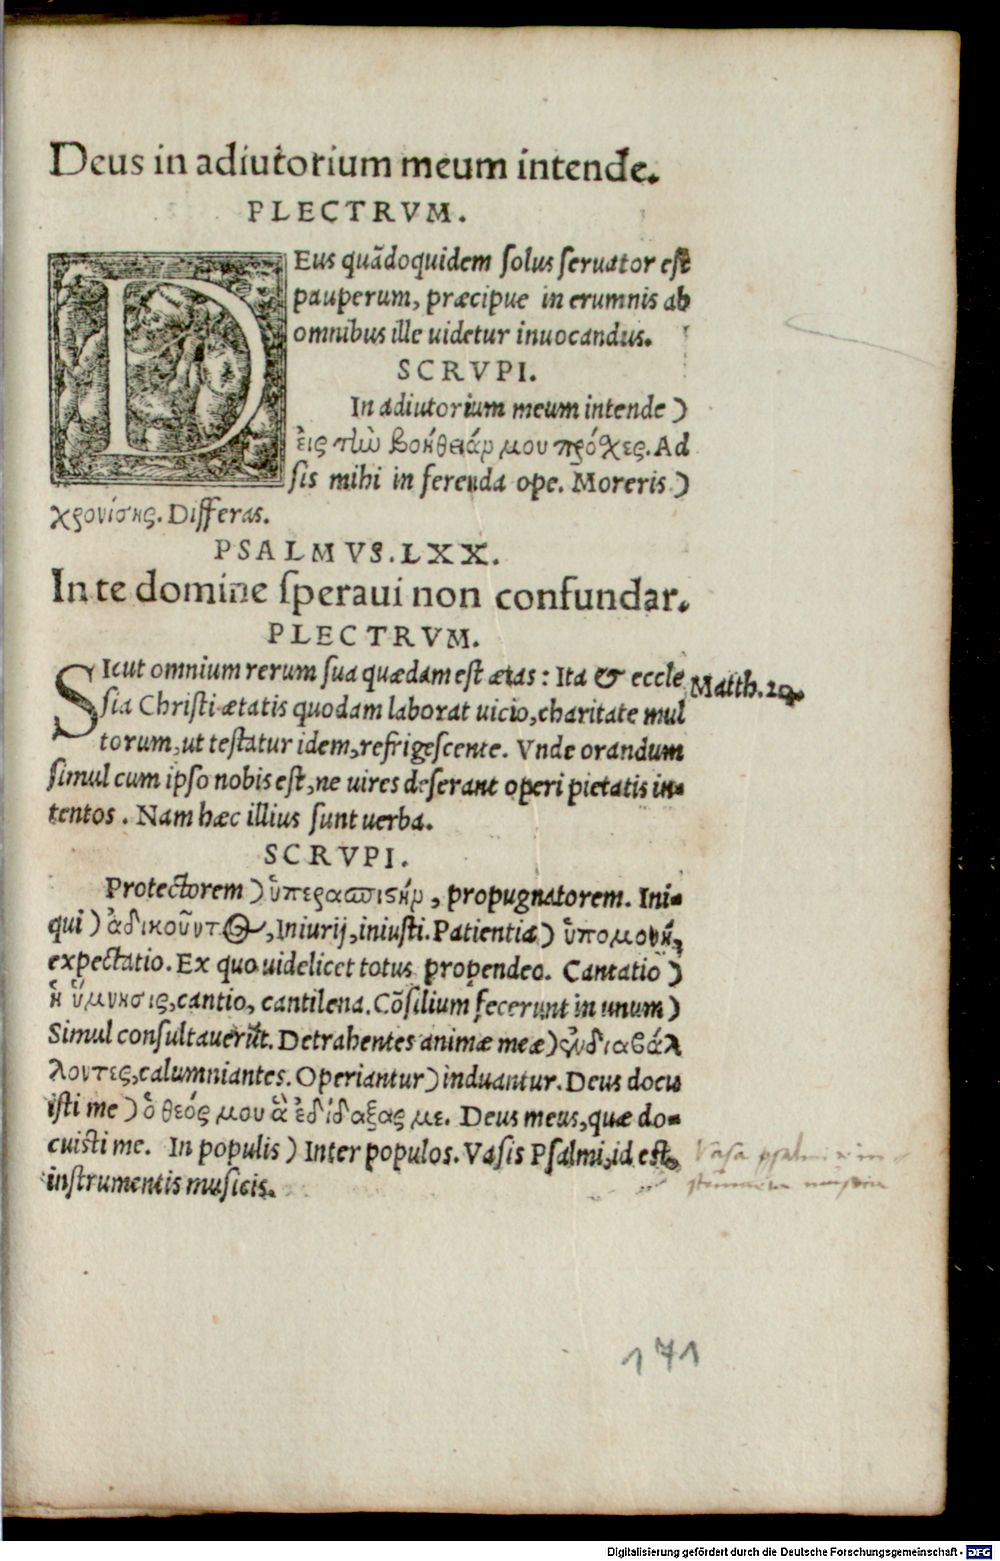 Deus in adiutorium meum intende.
PLECTRVM.
DEus quãdoquidem solus seruator est
pauperum, præcipue in erumnis ab
omnibus ille uidetur inuocandus.
SCRVPI.
In adiutorium meum intende)
εἰς τὴν βοήθειάν μου πρόσχες. Ad
sis mihi in ferenda ope. Moreris)
χρονίσῃς. Differas.
PSALMVS. LXX.
In te domine speraui non confundar.
PLECTRVM.
SIcut omnium rerum sua quædam est ætas: Ita & eccle
sia Christi ætatis quodam laborat uicio, charitate mul
torum, ut testatur idem, refrigescente. Vnde orandum
simul cum ipso nobis est, ne uires deserant operi pietatis in-
tentos. Nam hæc illius sunt uerba.
Matth. 20.
SCRVPI.
Protectorem) ὑπερασπιστὴν, propugnatorem. Ini-
qui) ἀδικοῦντος, Iniurij, iniusti. Patientia) ὑπομονή,
expectatio. Ex quo uidelicet totus propendeo. Cantatio)
ἡ ὕμνησις, cantio, cantilena. Cõsilium fecerunt in unum)
Simul consultauerũt. Detrahentes animæ meæ) ἐνδιαβάλ
λοντες, calumniantes. Operiantur) induantur. Deus docu
isti me) ὁ θεός μου ἃ ἐδίδαξας με. Deus meus, quæ do-
cuisti me. In populis) Inter populos. Vasis Psalmi, id est,
instrumentis musicis.
Vasa psalmi
171
Digitalisierung gefördert durch die Deutsche Forschungsgemeinschaft - DFG